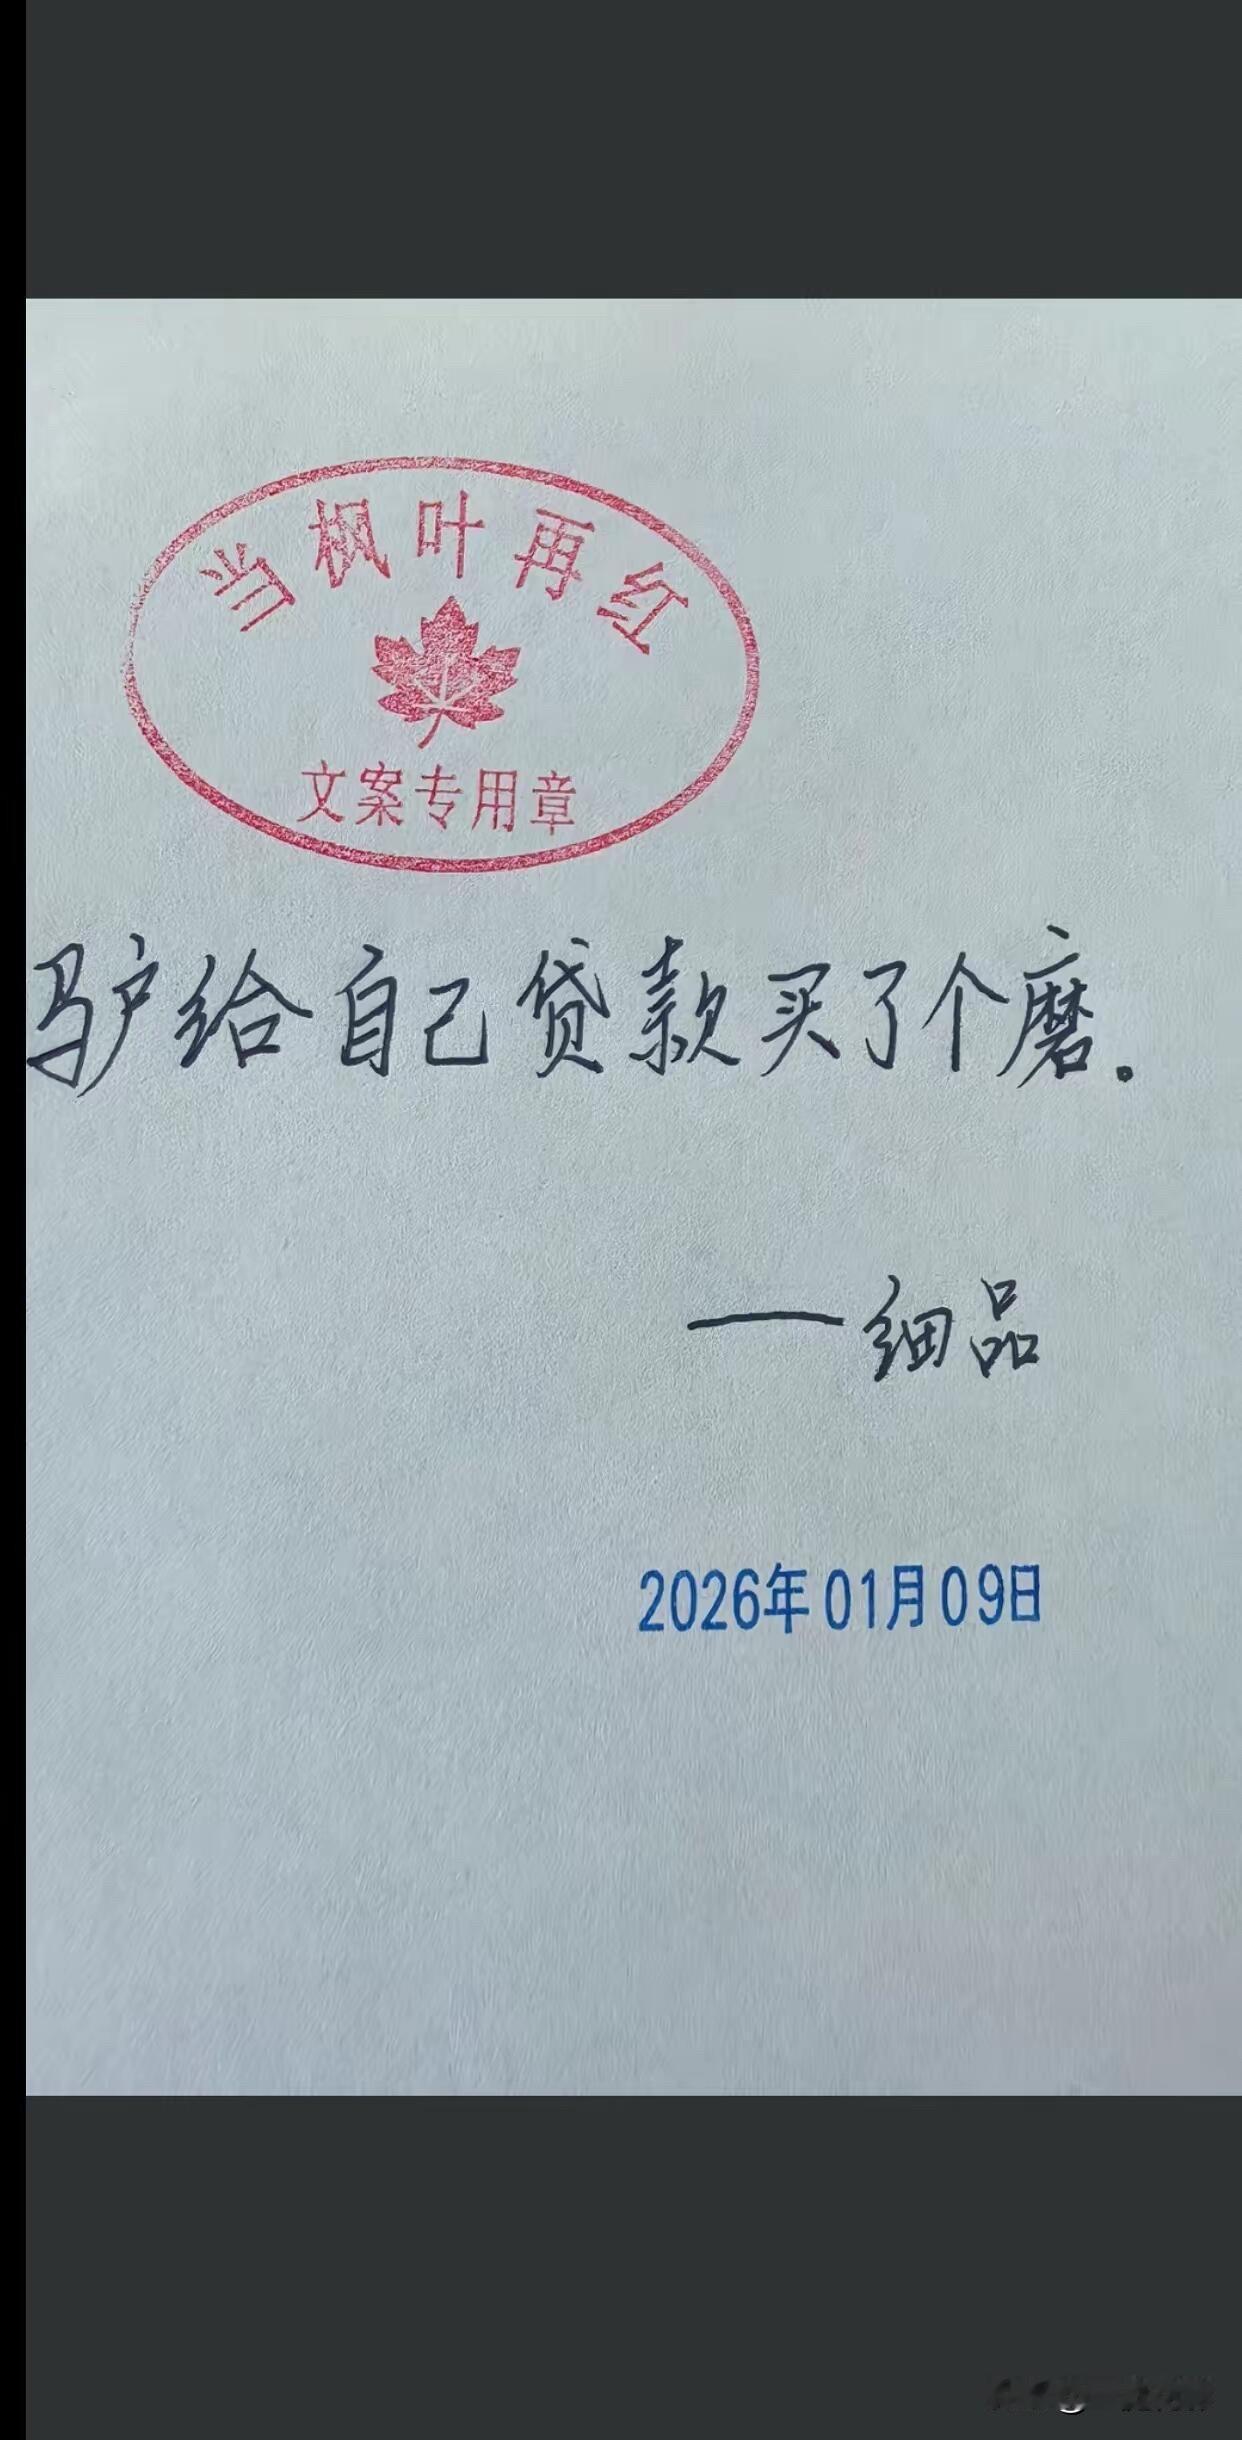 当枫叶再红
文案专用章
驴给自己贷款买了个磨。
——细品
2026年01月09日